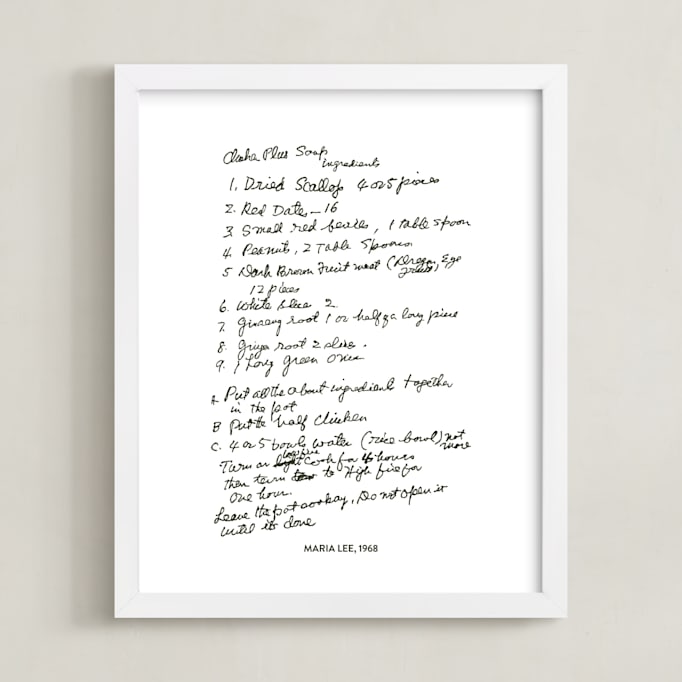 Plus Soup
ingredients
1. Dried Scallop 4 or 5 pieces
2. Red Dates – 16
3. Small red berries, 1 table spoon
4. Peanuts, 2 Table Spoons
5 Dark Brown Fruit meat (Dragon Eye
fruit)
12 pieces
6. White 2
7. Ginseng root 1 or half of a long piece
8. Ginger root 2 slices.
9. 1 Long green onion
A Put all the about ingredient together
in the pot
B Put the half Chicken
C. 4 or 5 bowls water (rice bowl) not
more
Turn on low fire Cook for 4 hours
then turn to High fire for
one hour.
Leave the pot , Do not open it
until it's done
MARIA LEE, 1968